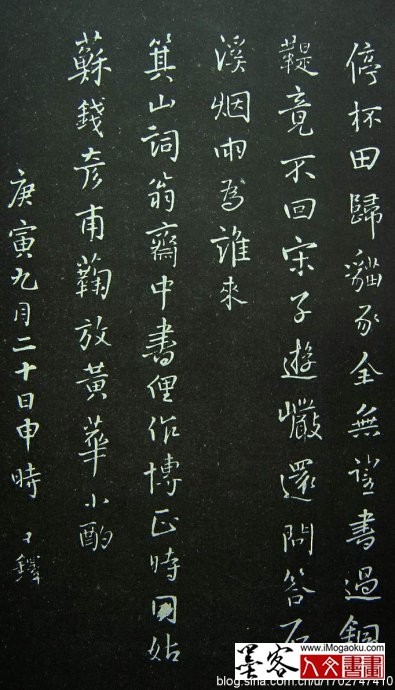 停杯田歸豕全無望書過銅
鞮竟不回宋子遊巖還問答石
溪烟雨為誰來
箕山詞翁齋中書俚作博正時同姑
蘇錢彥甫蘜放黃華小酌
庚寅九月二十日申時 王鐸
墨客 www.iMogaoku.com 人文書畫
blog.sina.com.cn/u/1702747410